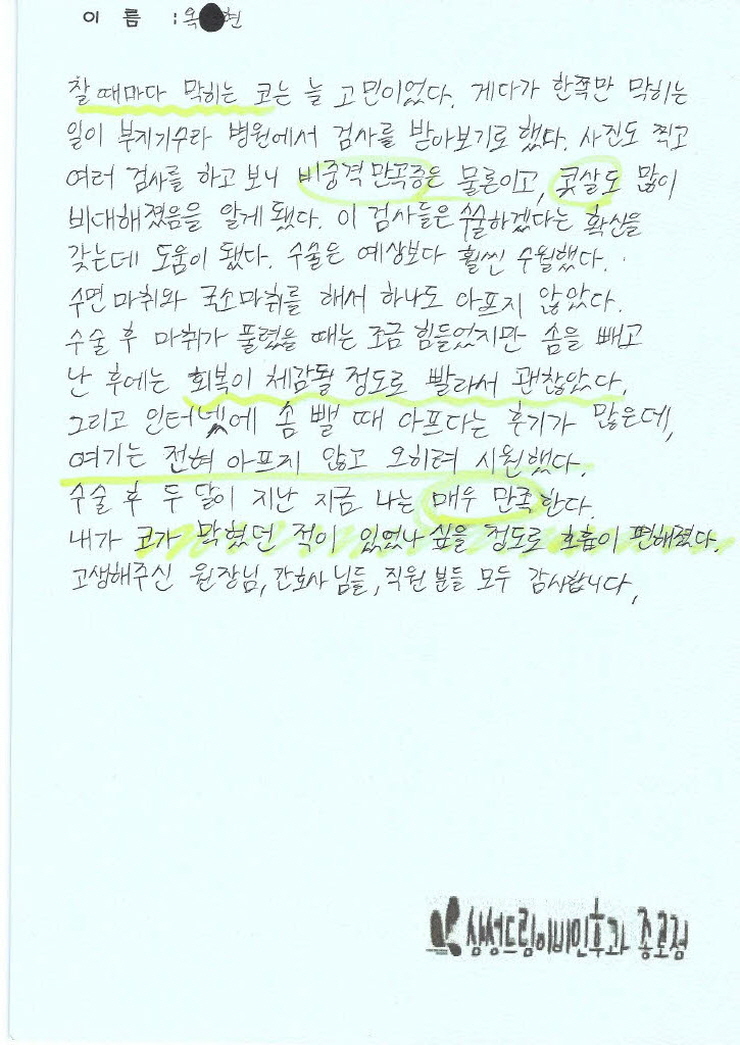 이 름 : 옥 현
잘 때마다 막히는 코는 늘 고민이었다. 게다가 한쪽만 막히는
일이 부지기수라 병원에서 검사를 받아보기로 했다. 사진도 찍고
여러 검사를 하고 보니 비중격 만곡증은 물론이고, 콧살도 많이
비대해졌음을 알게 됐다. 이 검사들은 수술하겠다는 확신을
갖는데 도움이 됐다. 수술은 예상보다 훨씬 수월했다.
수면 마취와 국소마취를 해서 하나도 아프지 않았다.
수술 후 마취가 풀렸을 때는 조금 힘들었지만 솜을 빼고
난 후에는 회복이 체감될 정도로 빨라서 괜찮았다.
그리고 인터넷에 솜 뺄 때 아프다는 후기가 많은데,
여기는 전혀 아프지 않고 오히려 시원했다.
수술 후 두 달이 지난 지금 나는 매우 만족한다.
내가 코가 막혔던 적이 있었나 싶을 정도로 호흡이 편해졌다.
고생해주신 원장님, 간호사님들, 직원분들 모두 감사합니다.
삼성드림이비인후과 종로점